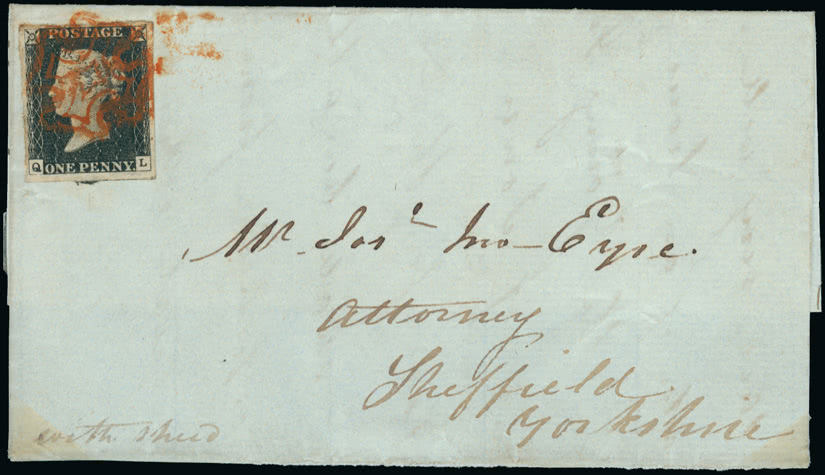 POSTAGE
ONE PENNY
Q L
Mr. Josʰ Jno- Eyre.
Attorney
Sheffield.
Yorkshire
with speed